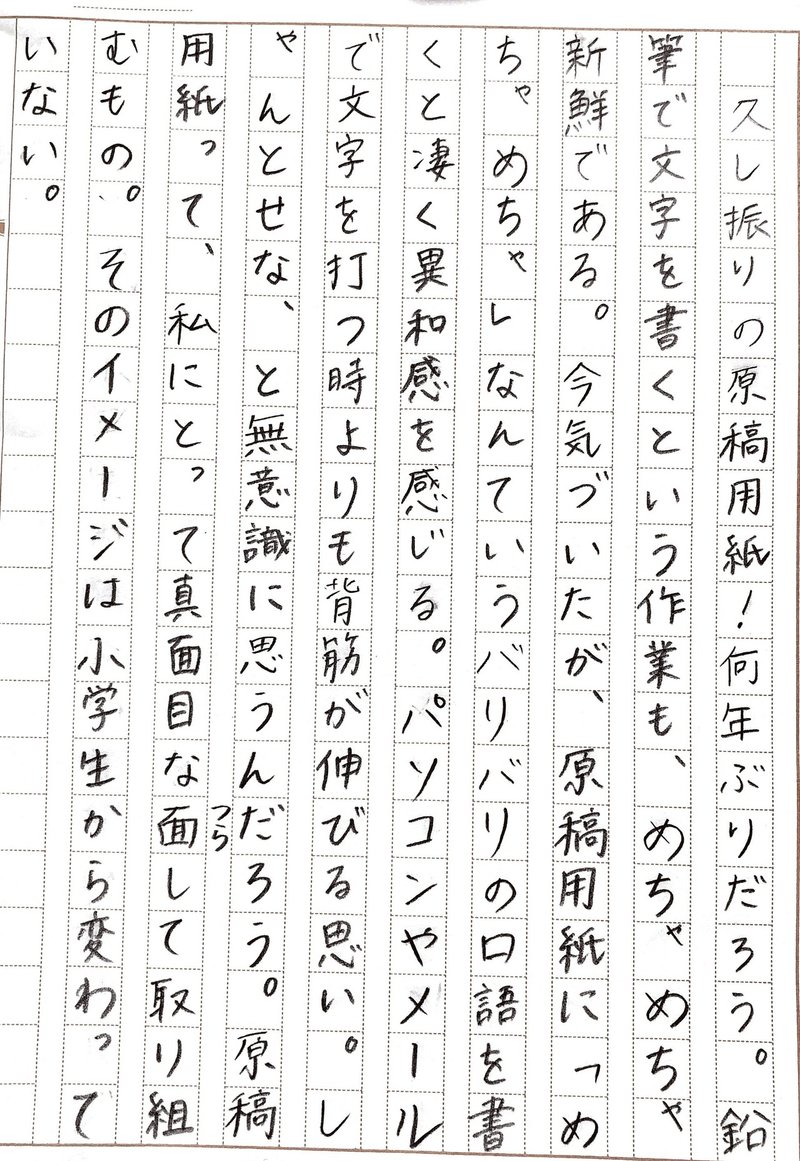 久し振りの原稿用紙!何年ぶりだろう。鉛
筆で文字を書くという作業も、めちゃめちゃ
新鮮である。今気づいたが、原稿用紙に「め
ちゃめちゃ」なんていうバリバリの口語を書
くと凄く異和感を感じる。パソコンやメール
で文字を打つ時よりも背筋が伸びる思い。し
ゃんとせな、と無意識に思うんだろう。原稿
用紙って、私にとって真面目な面つらして取り組
むもの。そのイメージは小学生から変わって
いない。